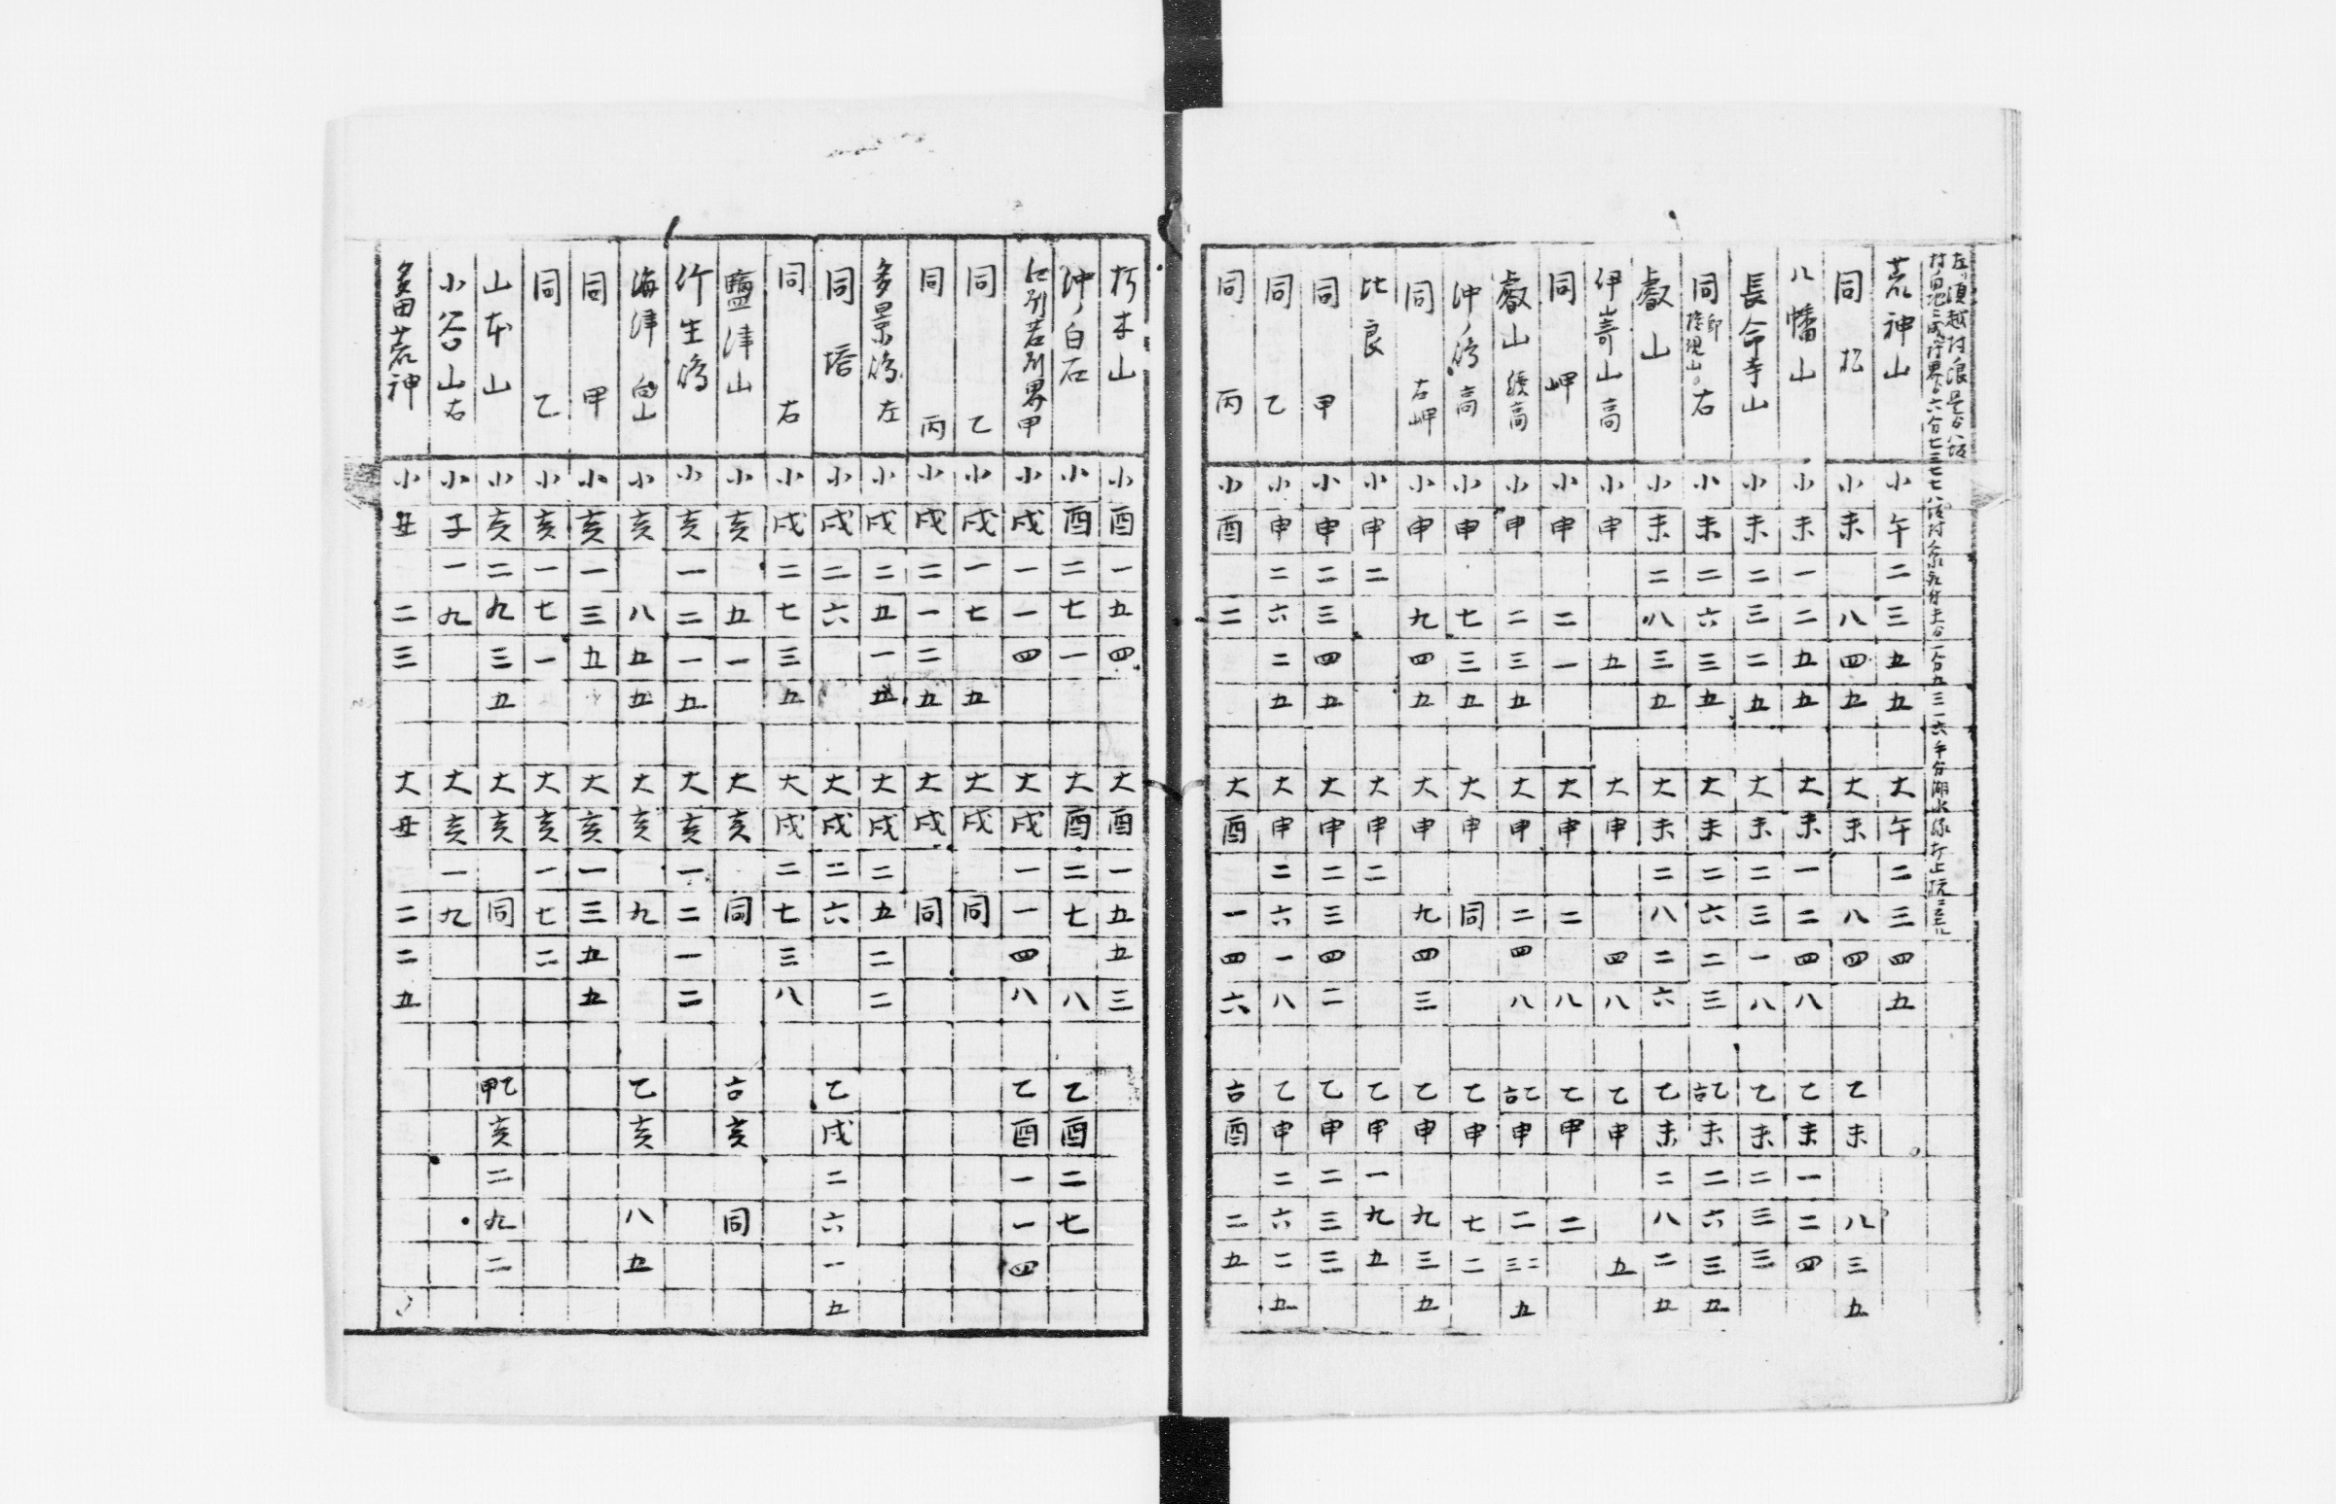 荒神山 小午二三五五 大午二三四五
同 松 小未 八四五 大未 八四 乙未 八三五
八幡山 小未一二五五 大未一二四八 乙未一二四
長命寺山 小未二三二五 大未二三一八 乙未二三三
同 右 小未二六三五 大未二六二三 乙未二六三五
叡山 小未二八三五 大未二八二六 乙未二八二五
伊嵜山高 小申 五 大申 四八 乙申 五
同 岬 小申 二一 大申 二 八 乙申 二
叡山 高 小申 二三五 大申 二四八 申 二 五
沖ノ嶋高 小申 七三五 大申 同 乙申 七二
同 右岬 小申 九四五 大申 九四三 乙申 九三五
比良 小申二 大申二 乙申一九五
同 甲 小申二三四五 大申二三四二 乙申二三三
同 乙 小申二六二五 大申二六一八 乙申二六二五
同 丙 小酉 二 大酉 一四六 酉 二五
朽木山 小酉一五四 大酉一五五三
沖ノ白石 小酉二七一 大酉二七 八 乙酉二七
江刕若刕界甲 小戌一一四 大戌一一四八 乙酉一一四
同 乙 小戌一七 五 大戌 同
同 丙 小戌二一二五 大戌 同
多景嶋左 小戌二五一五 大戌二五二二
同 塔 小戌二六 大戌二六 乙戌二六一五
同 右 小戌二七三五 大戌二七三八
鹽津山 小亥 五一 大亥 同 亥 同
竹生嶋 小亥一二一五 大亥一二一二
海津 山 小亥 八五五 大亥 九 乙亥 八五
同 甲 小亥一三五 大亥一三五五
同 乙 小亥一七一 大亥一七二
山本山 小亥二九三五 大亥 同 甲乙亥二九二
小谷山右 小子一九 大亥一九
多田荒神 小丑 二三 大丑 二二五